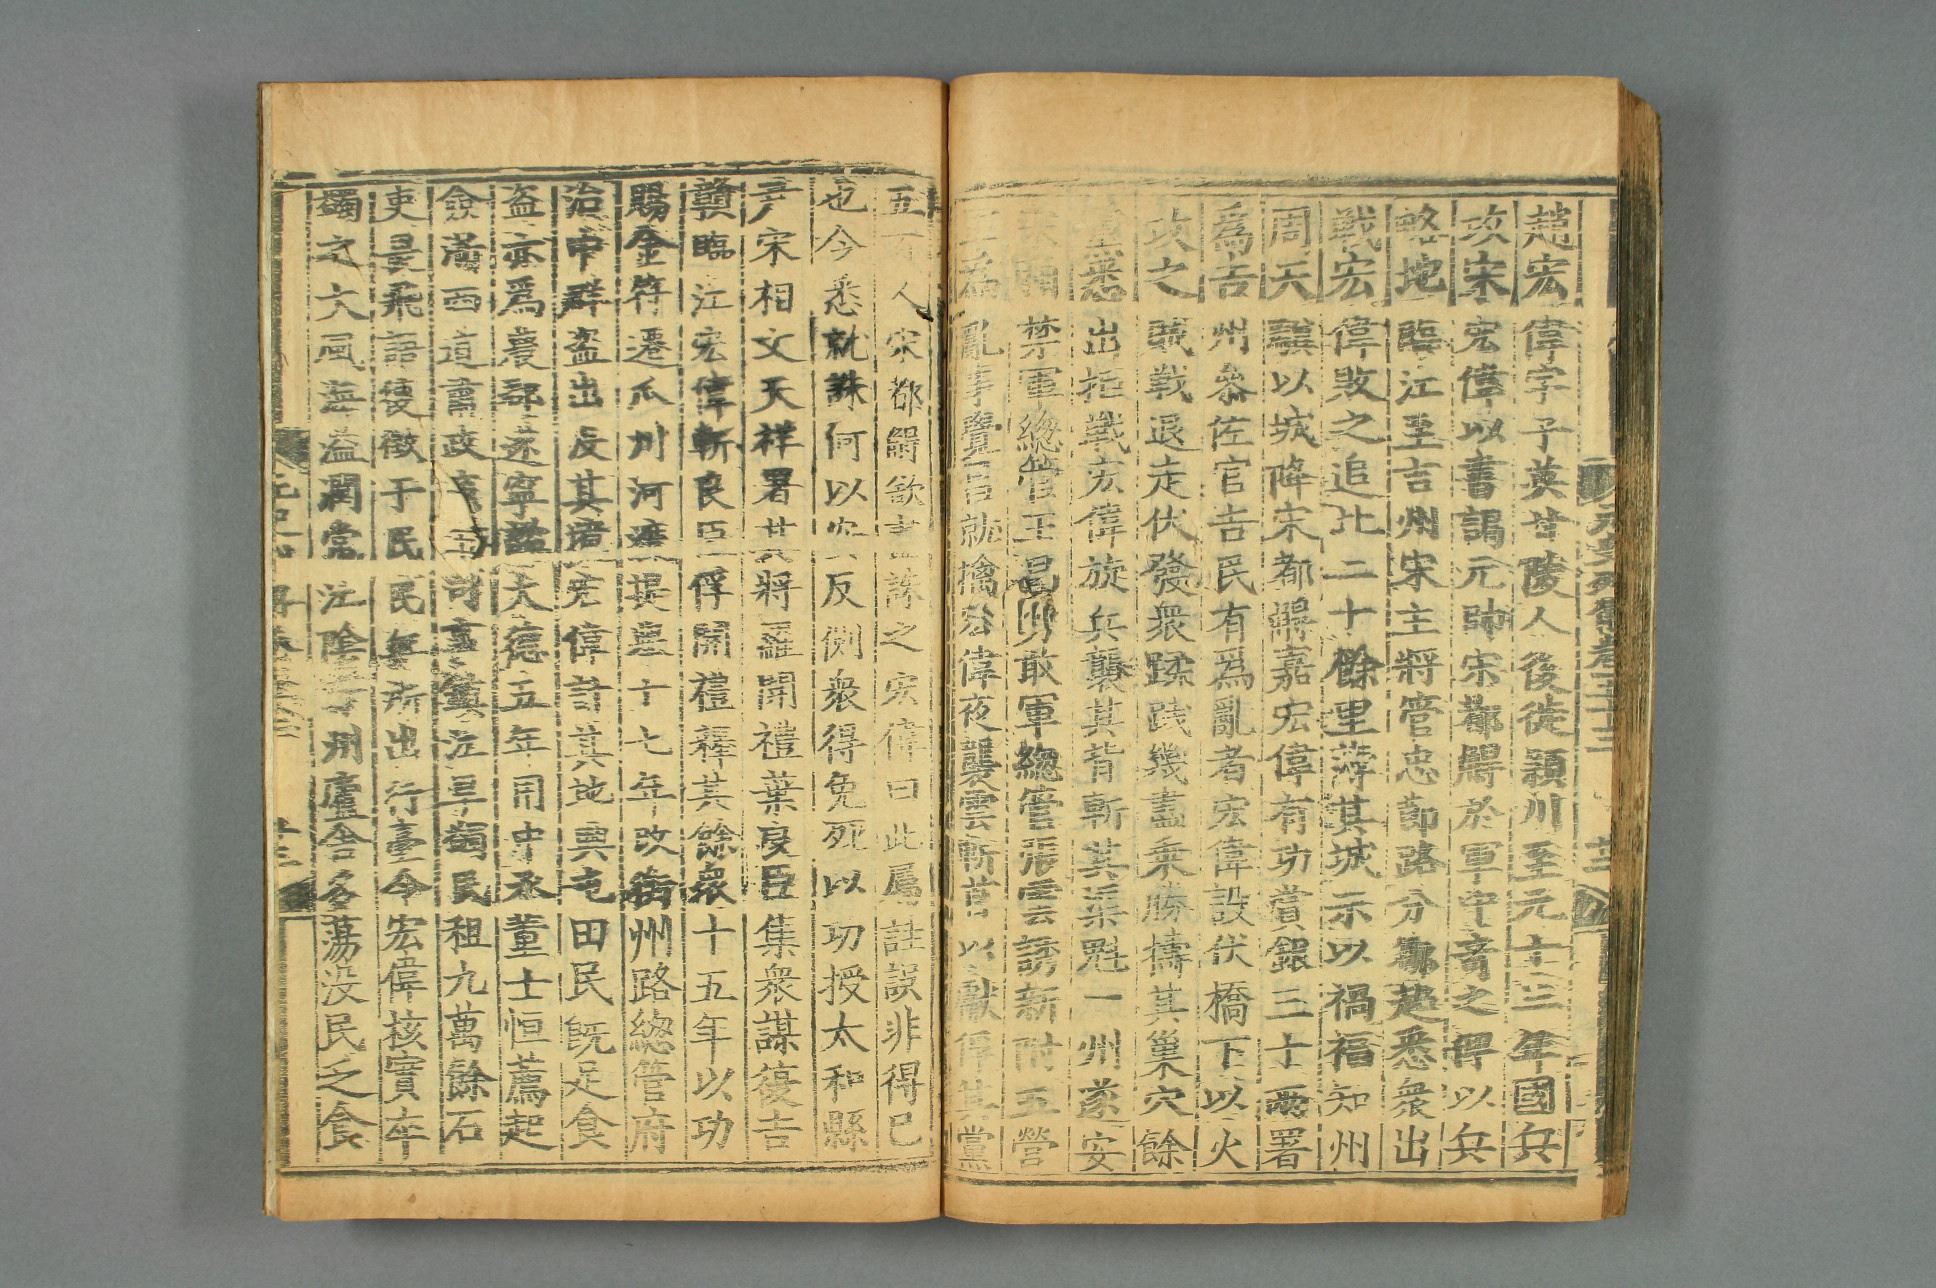 趙宏偉字子英甘陵人後徙潁川至元十三年國兵
攻宋宏偉以書謁元帥宋都䚟於軍中奇之俾以兵
略地臨江至吉州宋主將管忠節路分鄒超悉衆出
戰宏偉敗之追北二十餘里薄其城示以禍福知州
周天驥以城降宋都䚟嘉宏偉有功賞銀三十兩署
爲吉州參佐官吉民有爲亂者宏偉設伏橋下以火
攻之賊戰退走伏發衆蹂踐幾盡乘勝擣其巢穴餘
黨悉出拒戰宏偉旋兵襲其背斬其渠魁一州遂安
禁軍總管王昌勇敢軍總管張雲誘新附五營
爲亂事覺昌就擒宏偉夜襲雲斬首以獻俘其黨
五百人宋都䚟欲盡誅之宏偉曰此屬詿誤非得已
也今悉就誅何以安反側衆得免死以功授太和縣
尹宋相文天祥署其將羅開禮葉良臣集衆謀復吉
贛臨江宏偉斬良臣俘開禮釋其餘衆十五年以功
賜金符遷瓜州河渡提舉十七年改衡州路總管府
治中群盜出沒其境宏偉討其地與屯田民既足食
盜亦爲農郡遂寧謐大德五年用中丞董士恒薦起
僉浙西道肅政事 鎮江旱蠲民租九萬餘石
吏畏飛語復徵于民民無所出行臺令宏偉核實卒
蠲之大風海溢潤常江陰等州廬舍多蕩沒民乏食